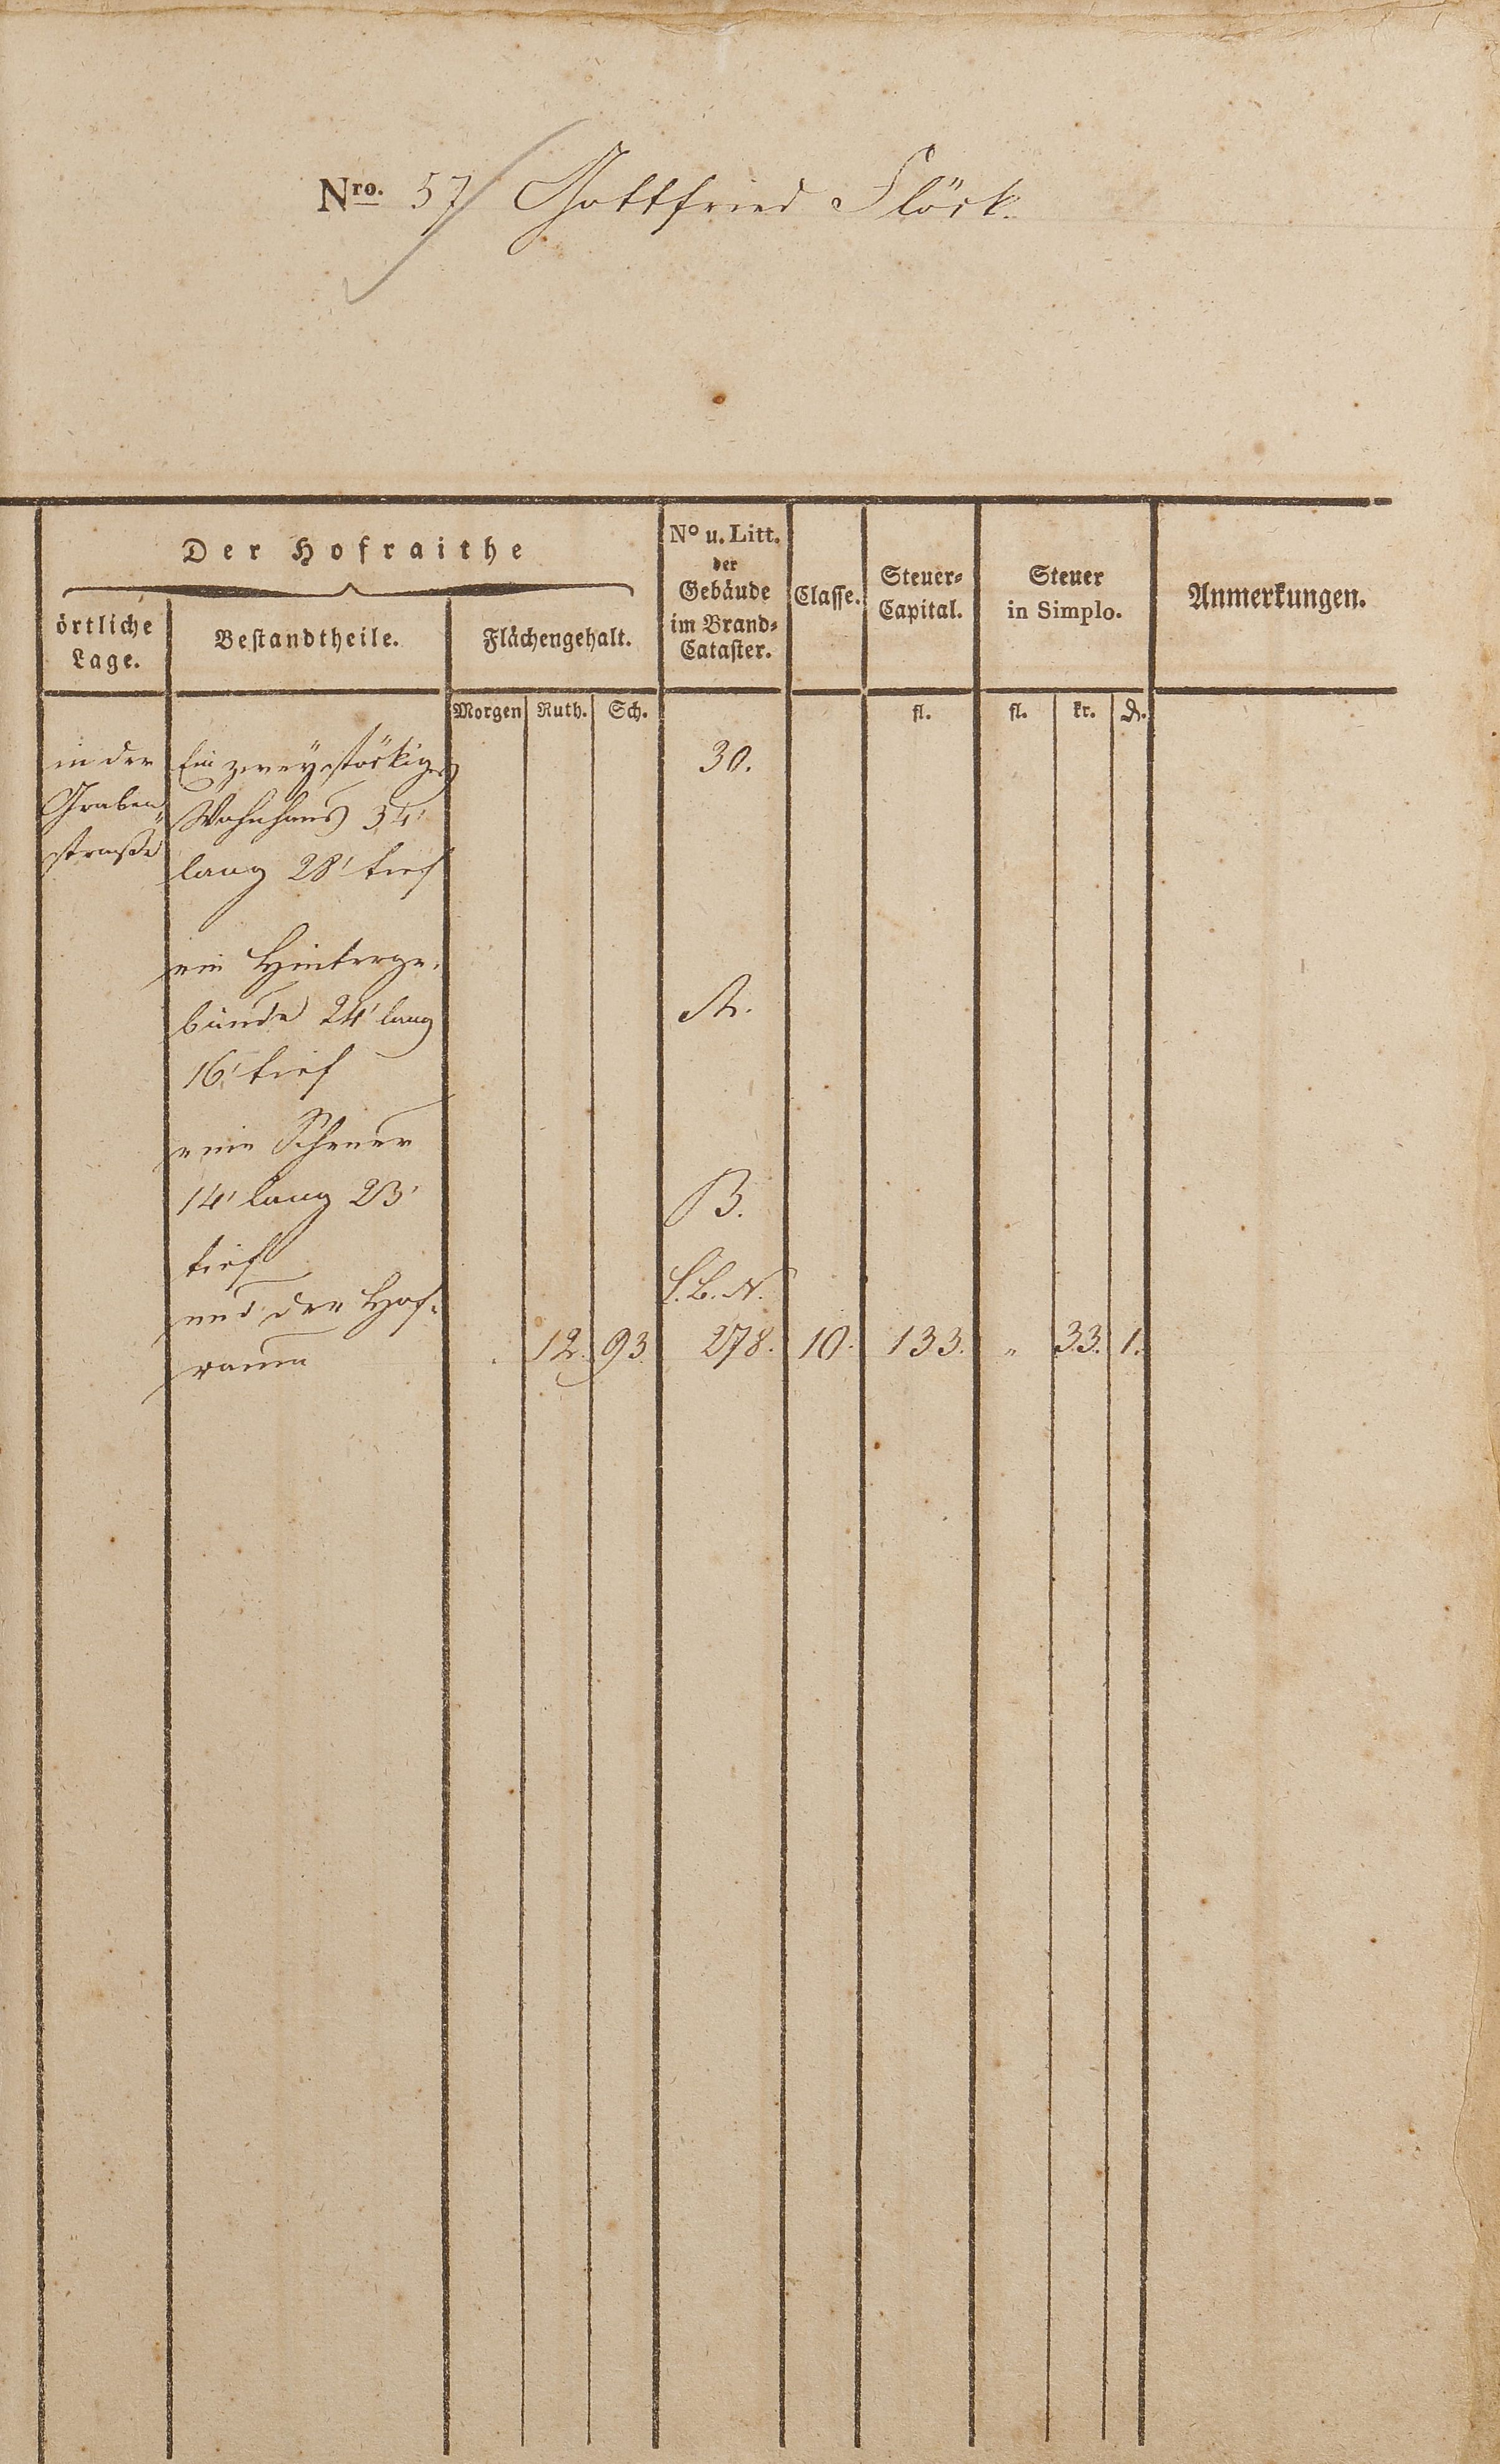 Nro. 57 Gottfried Flöck.
Der Hofraithe
örtliche
Lage.
Bestandtheile.
Flächengehalt.
No u. Litt.
der
Gebäude
im Brand-
Cataster.
Classe.
Steuer-
Capital.
Steuer
in Simplo.
Anmerkungen.
Morgen Ruth. Sch. fl. fl. kr. d.
in der
Graben
straße
Ein zweystöckiges
Wohnhaus 34'
lang 28' tief
30.
ein Hinterge-
bäude 24' lang
16' tief
A.
eine Scheuer
14' lang 23'
tief
B.
und der Hof-
raum
L.B.N.
12. 93. 278. 10. 133. " 33. 1.